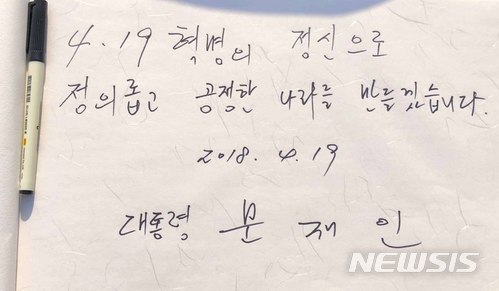 4.19 혁명의 정신으로
정의롭고 공정한 나라를 만들겠습니다.
2018. 4. 19
대통령 문 재 인
NEWSIS